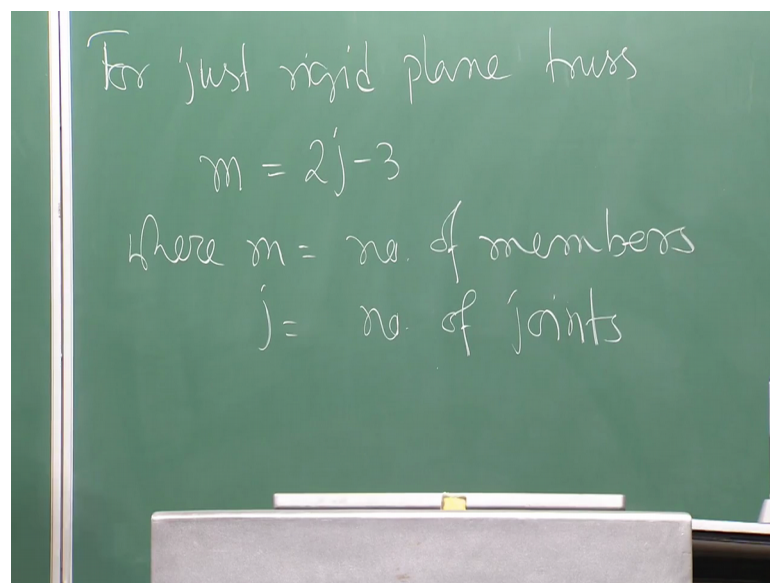 For just rigid plane truss
m = 2j - 3
where m = no. of members
j = no. of joints